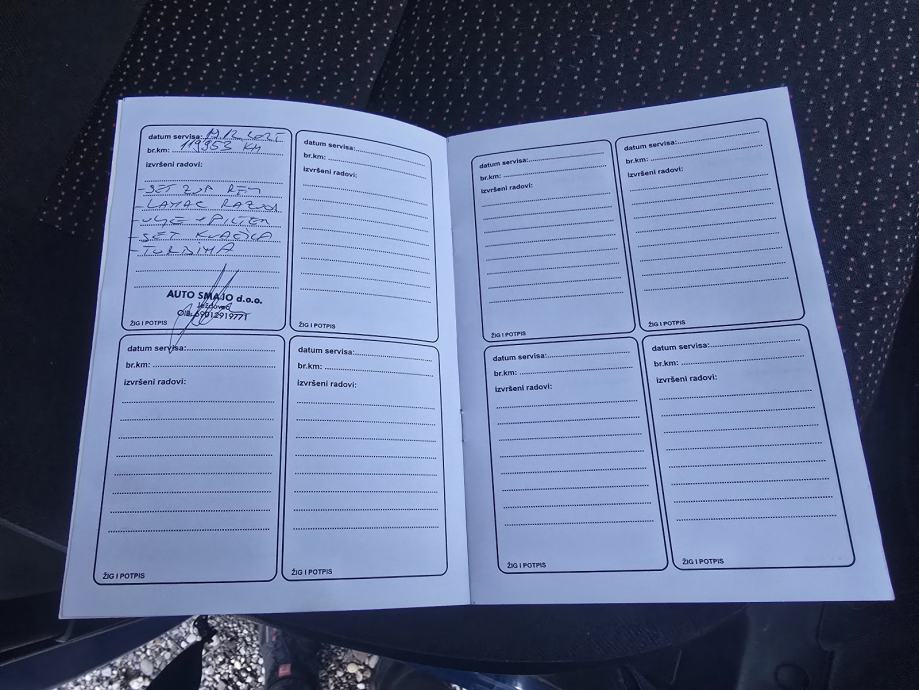 datum servisa:
br.km: 119953 KM
izvršeni radovi:
- SET ZUP REM
- LANAC RAZVOD
- ULJE + FILTER
- SET KVAČILA
- TURBINA
AUTO SMAJO d.o.o.
OIB:
ŽIG I POTPIS
datum servisa:
br.km:
izvršeni radovi:
ŽIG I POTPIS
datum servisa:
br.km:
izvršeni radovi:
ŽIG I POTPIS
datum servisa:
br.km:
izvršeni radovi:
ŽIG I POTPIS
datum servisa:
br.km:
izvršeni radovi:
ŽIG I POTPIS
datum servisa:
br.km:
izvršeni radovi:
ŽIG I POTPIS
datum servisa:
br.km:
izvršeni radovi:
ŽIG I POTPIS
datum servisa:
br.km:
izvršeni radovi:
ŽIG I POTPIS